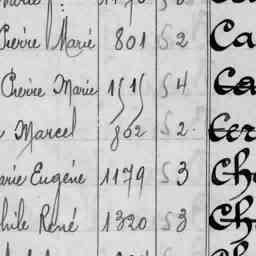 Pierre Marie 801 S 2 Ca
Pierre Marie 1515 S 4 Ca
Marcel 802 S 2. Cer
arie Eugène 1179 S 3 Ch
hile René 1320 S 3 Ch